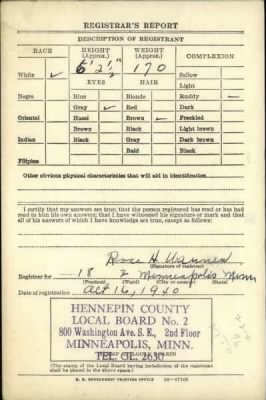 REGISTRAR'S REPORT
DESCRIPTION OF REGISTRANT
RACE HEIGHT (Approx.) WEIGHT (Approx.) COMPLEXION
White ✓ 6' 2½" 170 Sallow
EYES HAIR Light
Negro Blue Blonde Ruddy
Gray ✓ Red Dark
Oriental Hazel Brown Freckled
Brown Black Light brown
Indian Black Gray Dark brown
Bald Black
Filipino
Other obvious physical characteristics that will aid in identification
I certify that my answers are true; that the person registered has read or has had read to him his own answers; that I have witnessed his signature or mark and that all of his answers of which I have knowledge are true, except as follows:
H. Warner
(Signature of registrar)
Registrar for 18 2 Minneapolis Minn
(Precinct) (Ward) (City or county) (State)
Date of registration Oct 16, 1940
HENNEPIN COUNTY
LOCAL BOARD No. 2
800 Washington Ave. S. E., 2nd Floor
MINNEAPOLIS, MINN.
TEL. GL. 2630
(The stamp of the Local Board having jurisdiction of the registrant shall be placed in the above space.)
U. S. GOVERNMENT PRINTING OFFICE